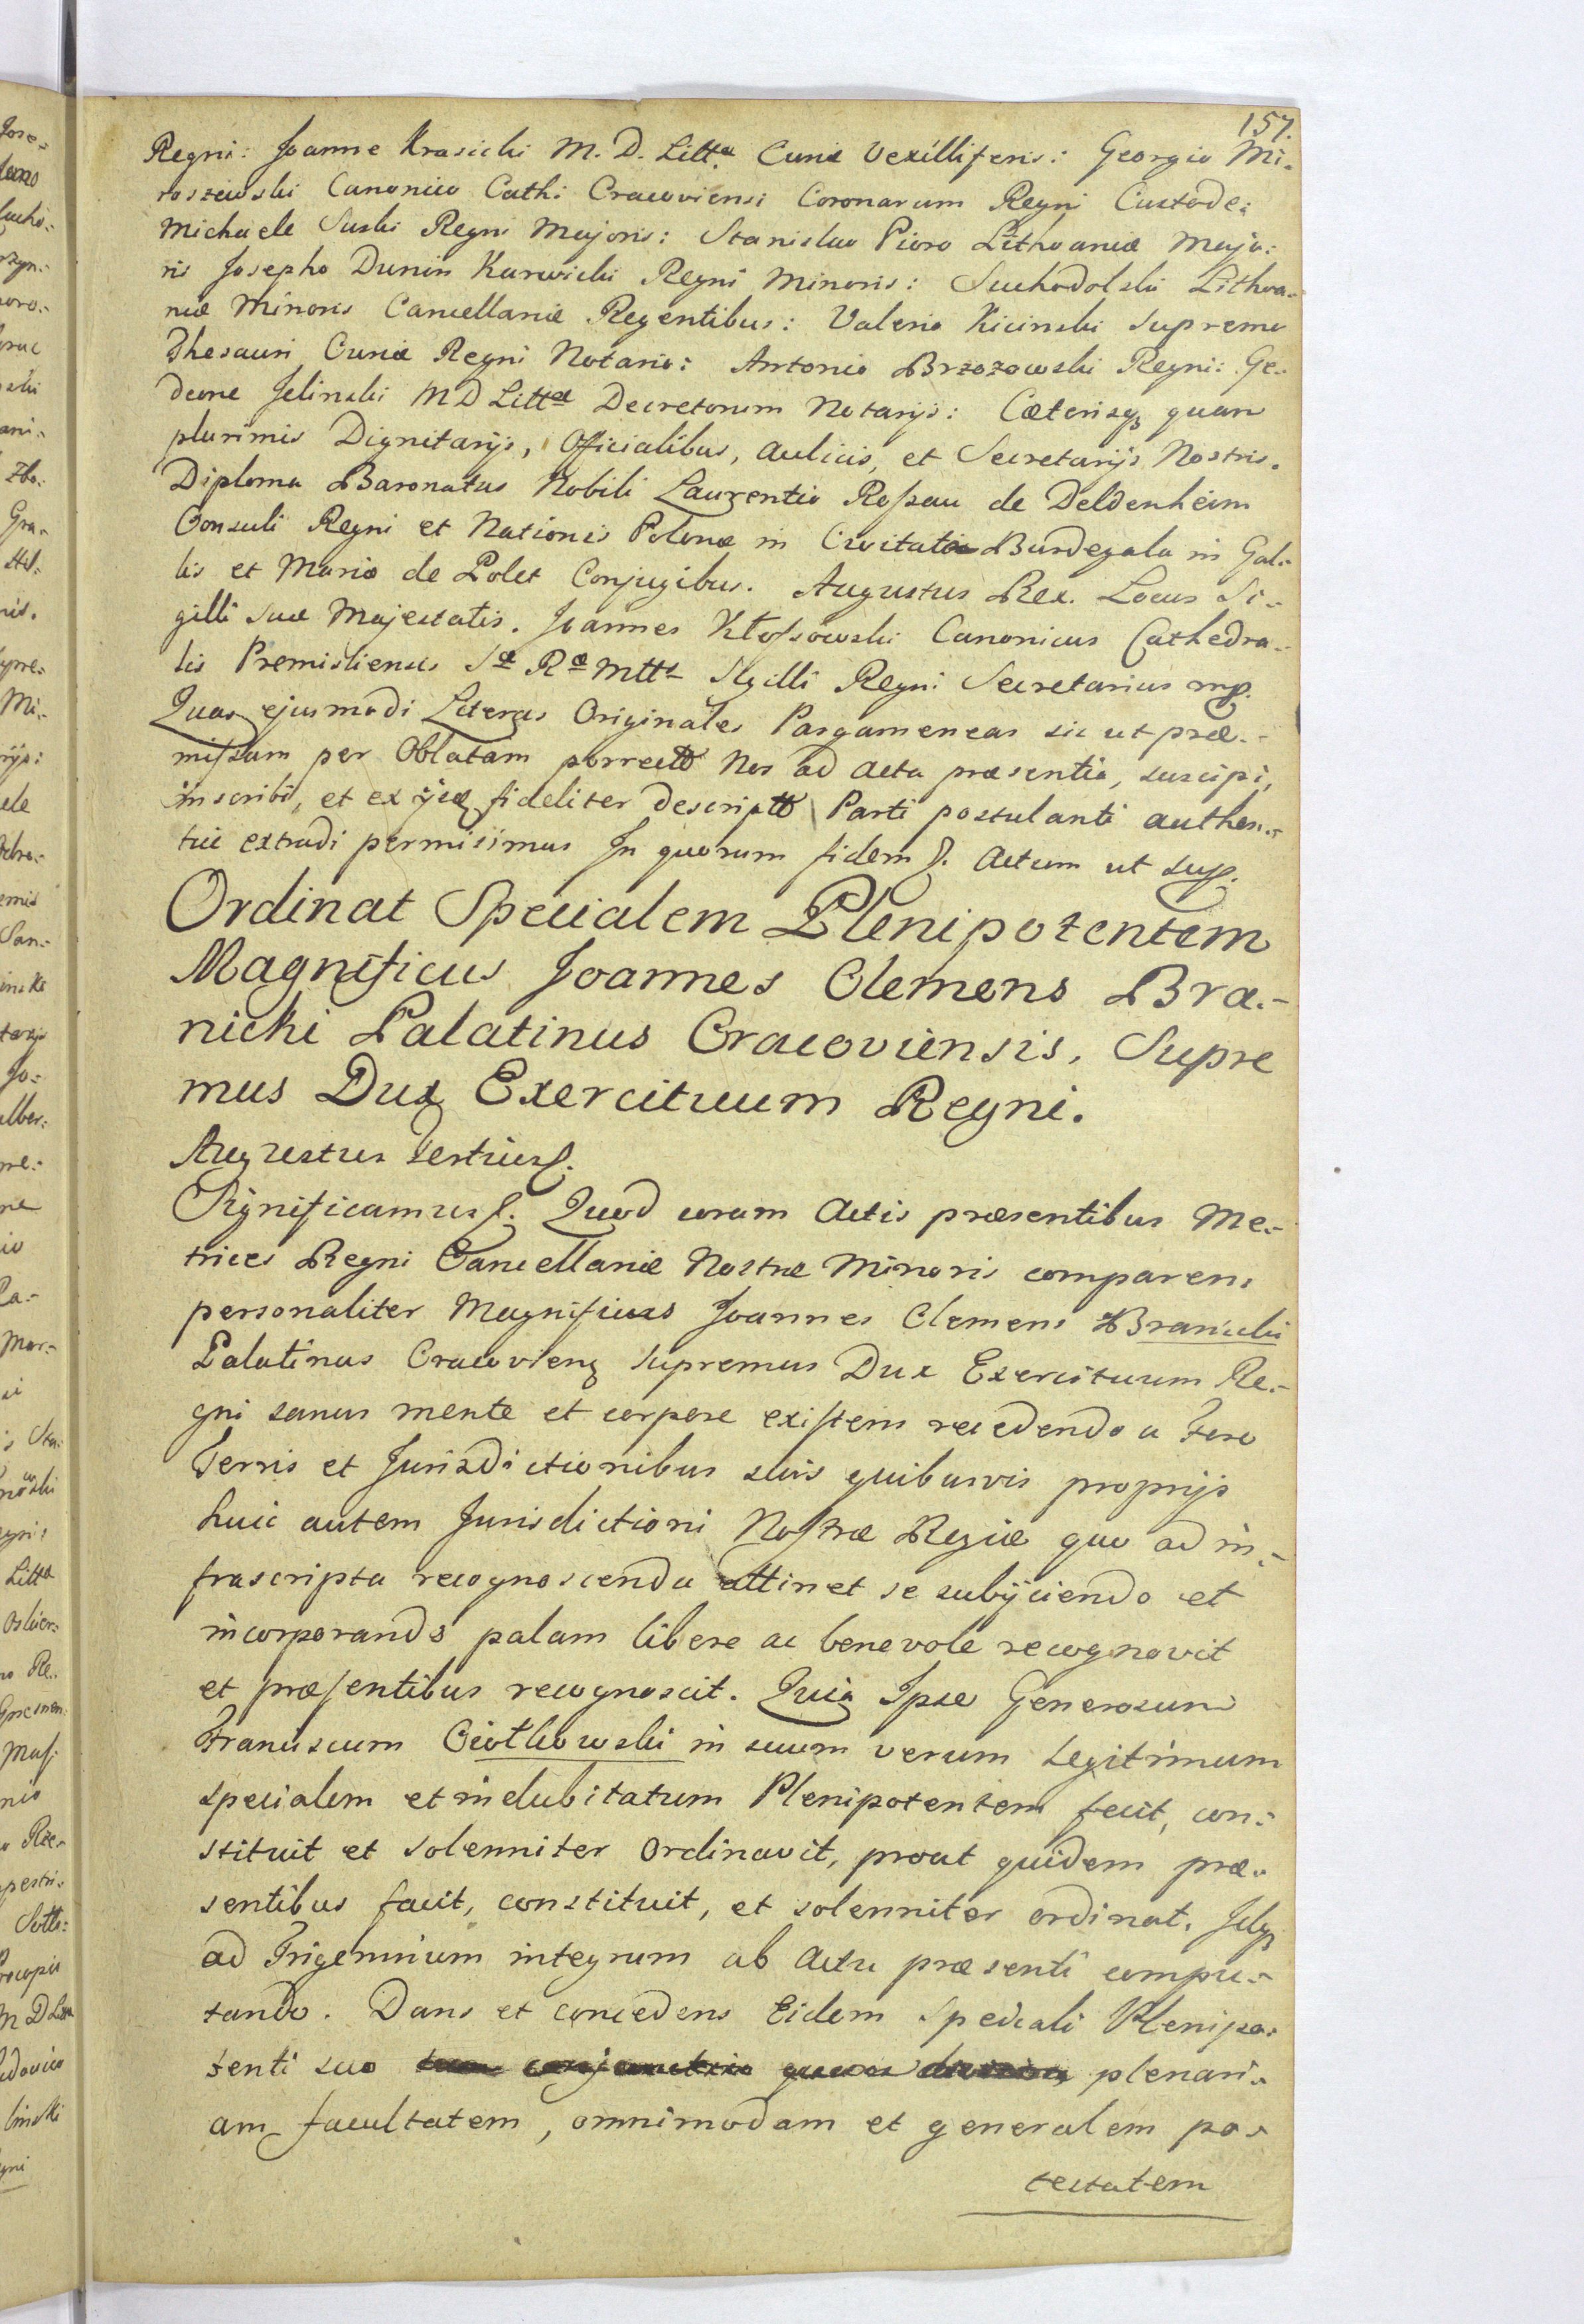 157.
Regni: Joanne Krasicki M. D. Littæ Curiæ Vexilliferis: Georgio Mi-
roszewski Canonico Cath: Cracoviensi Coronarum Regni Custode:
Michaele Suski Regni Majoris: Stanislao Pioro Lithvaniæ Majo:
ris Josepho Dunin Karwicki Regni Minoris: Suchodolski Lithva-
niæ Minoris Cancellariæ Regentibus: Valerio Kicinski Supremo
Thesauri Curiæ Regni Notario: Antonio Brzozowski Regni: Ge-
deone Jelinski M D Littæ Decretorum Notarijs: Cæterisq quam
plurimis Dignitarijs, Officialibus, Aulicis, et Secretarijs Nostris.
Diploma Baronatus Nobili Laurentio Roſzau de Deldenheim
Consuli Regni et Nationis Polonæ in Civitate Burdegala in Gal-
lis et Maria de Polet Conjugibus. Augustus Rex. Locus Si-
gilli Suæ Majestatis. Joannes Kłoſsowski Canonicus Cathedra-
lis Premisliensis Sæ Ræ Mttis Sigilli Regni Secretarius mp.
Quas ejusmodi Literas Originales Pargameneas sic ut præ-
miſsum per Oblatam porrectas Nos ad Acta præsentia, suscipi,
inscribi, et ex ijsq fideliter descriptas Parti postulanti authen-
tice extradi permisimus In quorum fidem ſ. Actum ut sup.
Ordinat Specialem Plenipotentem
Magnificus Joannes Clemens Bra-
nicki Palatinus Cracoviensis, Supre
mus Dux Exercituum Regni.
Augustus Tertiusſ.
Significamusſ. Quod coram Actis præsentibus Me-
trices Regni Cancellariæ Nostræ Minoris comparens
personaliter Magnificus Joannes Clemens Branicki
Palatinus Cracovienq Supremus Dux Exercituum Re-
gni sanus mente et corpore exiſtens recedendo a Foro
Terris et Jurisdictionibus suis quibusvis proprijs
huic autem Jurisdictioni Noſtræ Regiæ quo ad in-
frascripta recognoscenda attinet se subijciendo et
incorporando palam libere ac benevole recognovit
et præſentibus recognoscit. Quia Ipse Generosum
Franciscum Ciotkowski in suum verum legitimum
specialem et indubitatum Plenipotentem fecit, con-
stituit et solenniter Ordinavit, prout quidem præ-
sentibus facit, constituit, et solenniter ordinat, Idq
ad Trigennium integrum ab Actu præsenti compu-
tando. Dans et concedens Eidem Speciali Plenipo-
tenti suo plenari-
am facultatem, omnimodam et generalem po-
testatem